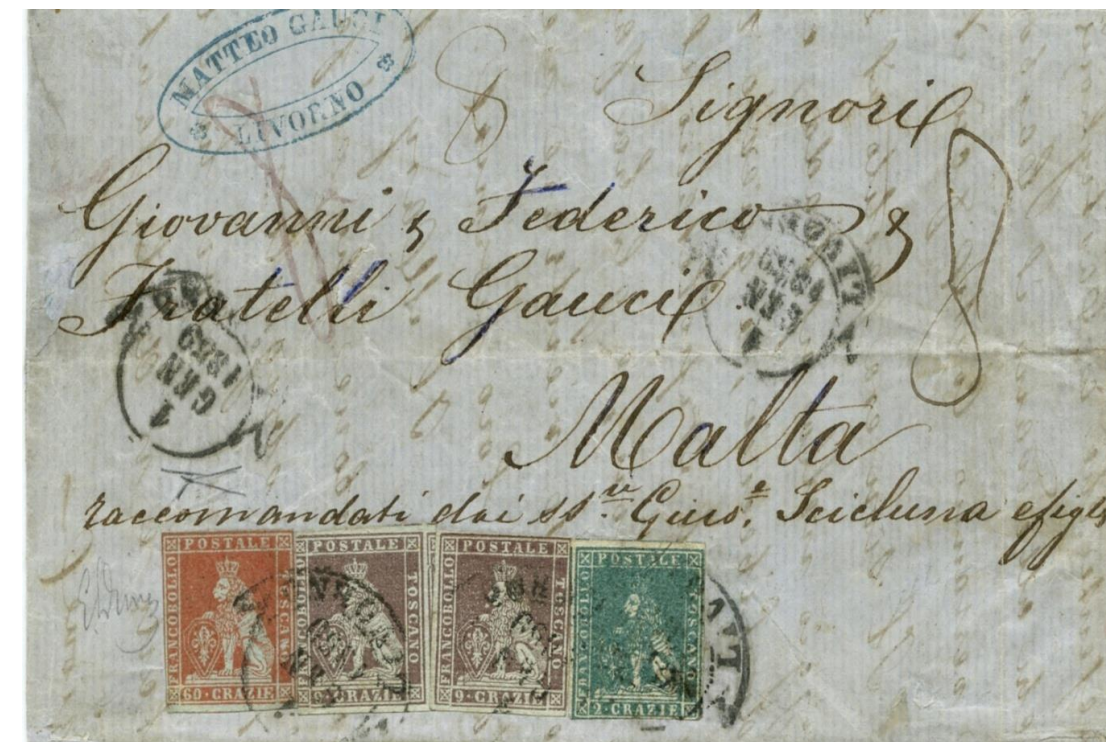 MATTEO GAUCI
LIVORNO
8
Signori
Giovanni & Federico &
Fratelli Gauci
8
Malta
1
GEN
1
GEN
raccomandati dai ss.ri Gius.e Scicluna e figli
POSTALE
FRANCOBOLLO
TOSCANO
60·CRAZIE
POSTALE
FRANCOBOLLO
TOSCANO
9·CRAZIE
POSTALE
FRANCOBOLLO
TOSCANO
9·CRAZIE
POSTALE
FRANCOBOLLO
TOSCANO
2·CRAZIE